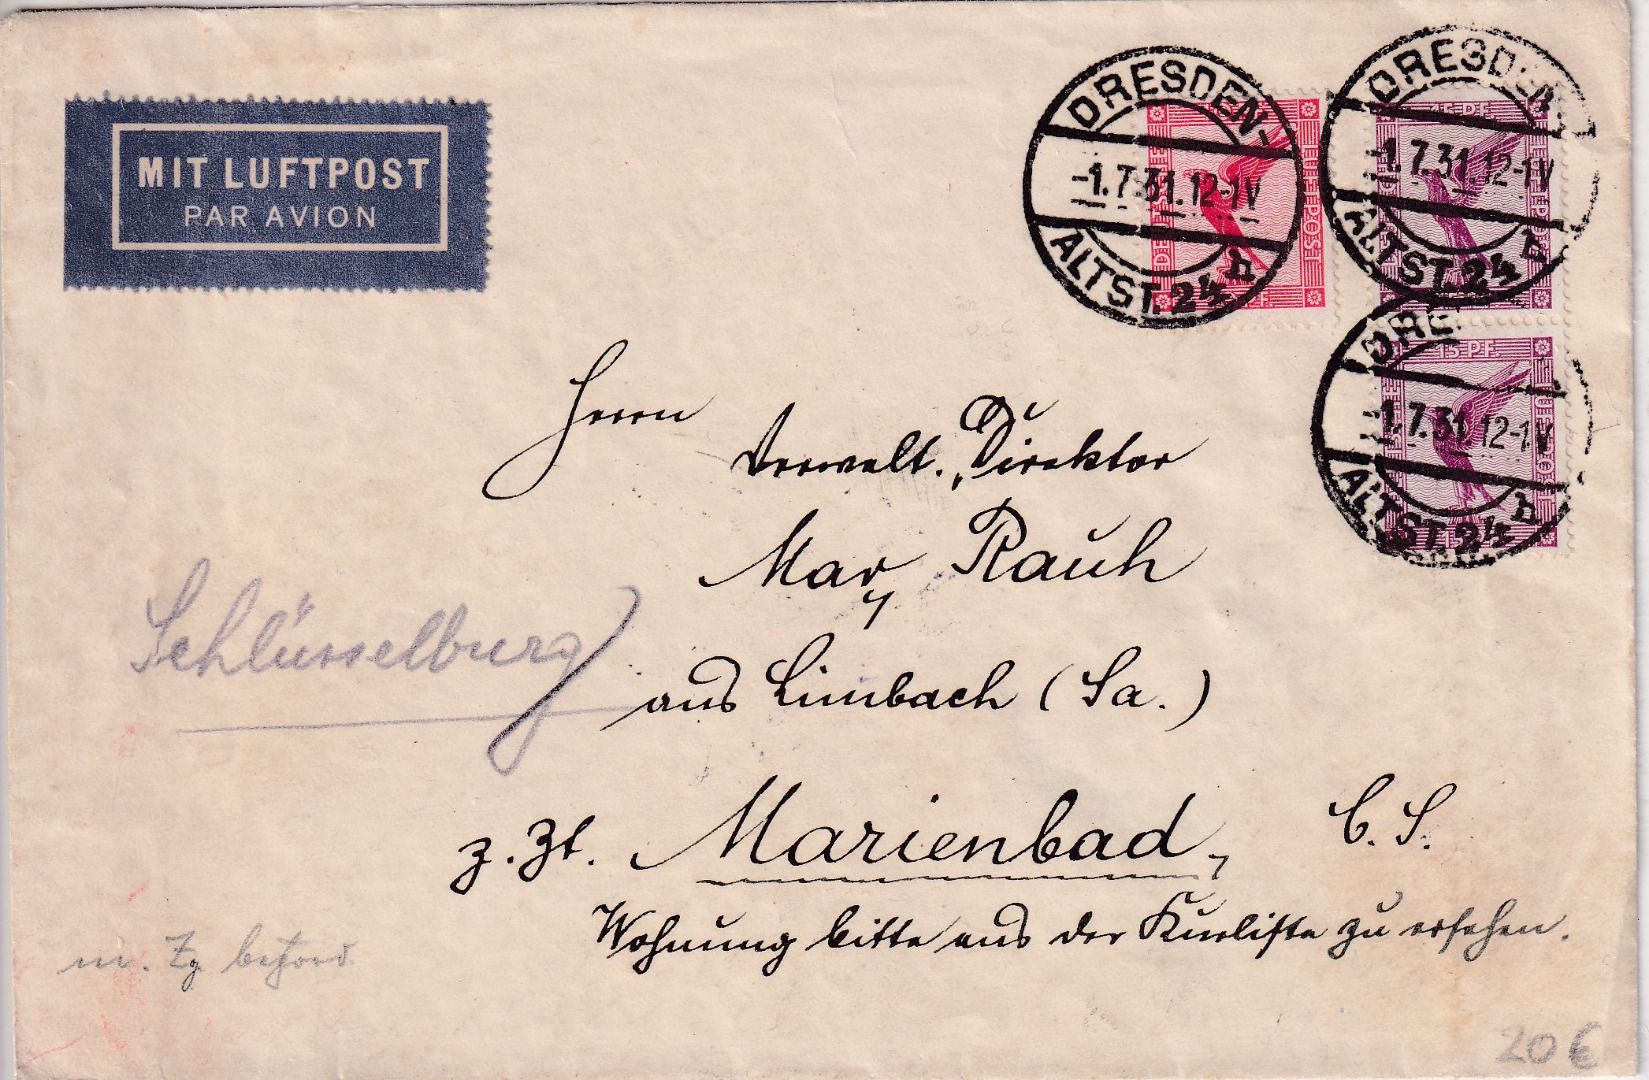 MIT LUFTPOST
PAR AVION
DRESDEN-
-1.7.31.12-1V
ALTST. 24 b
DRESDEN
-1.7.31.12-1V
ALTST. 24 b
DRE
-1.7.31.12-1V
ALTST. 24 b
LUFTPOST
15 PF
15 P.F.
Herrn
Verwalt. Direktor
Rauh
aus Limbach (Sa.)
Schlüsselburg
z. Zt. Marienbad, C. S.
Wohnung bitte aus der Kurliste zu ersehen.
m. Zg beförd
20 €